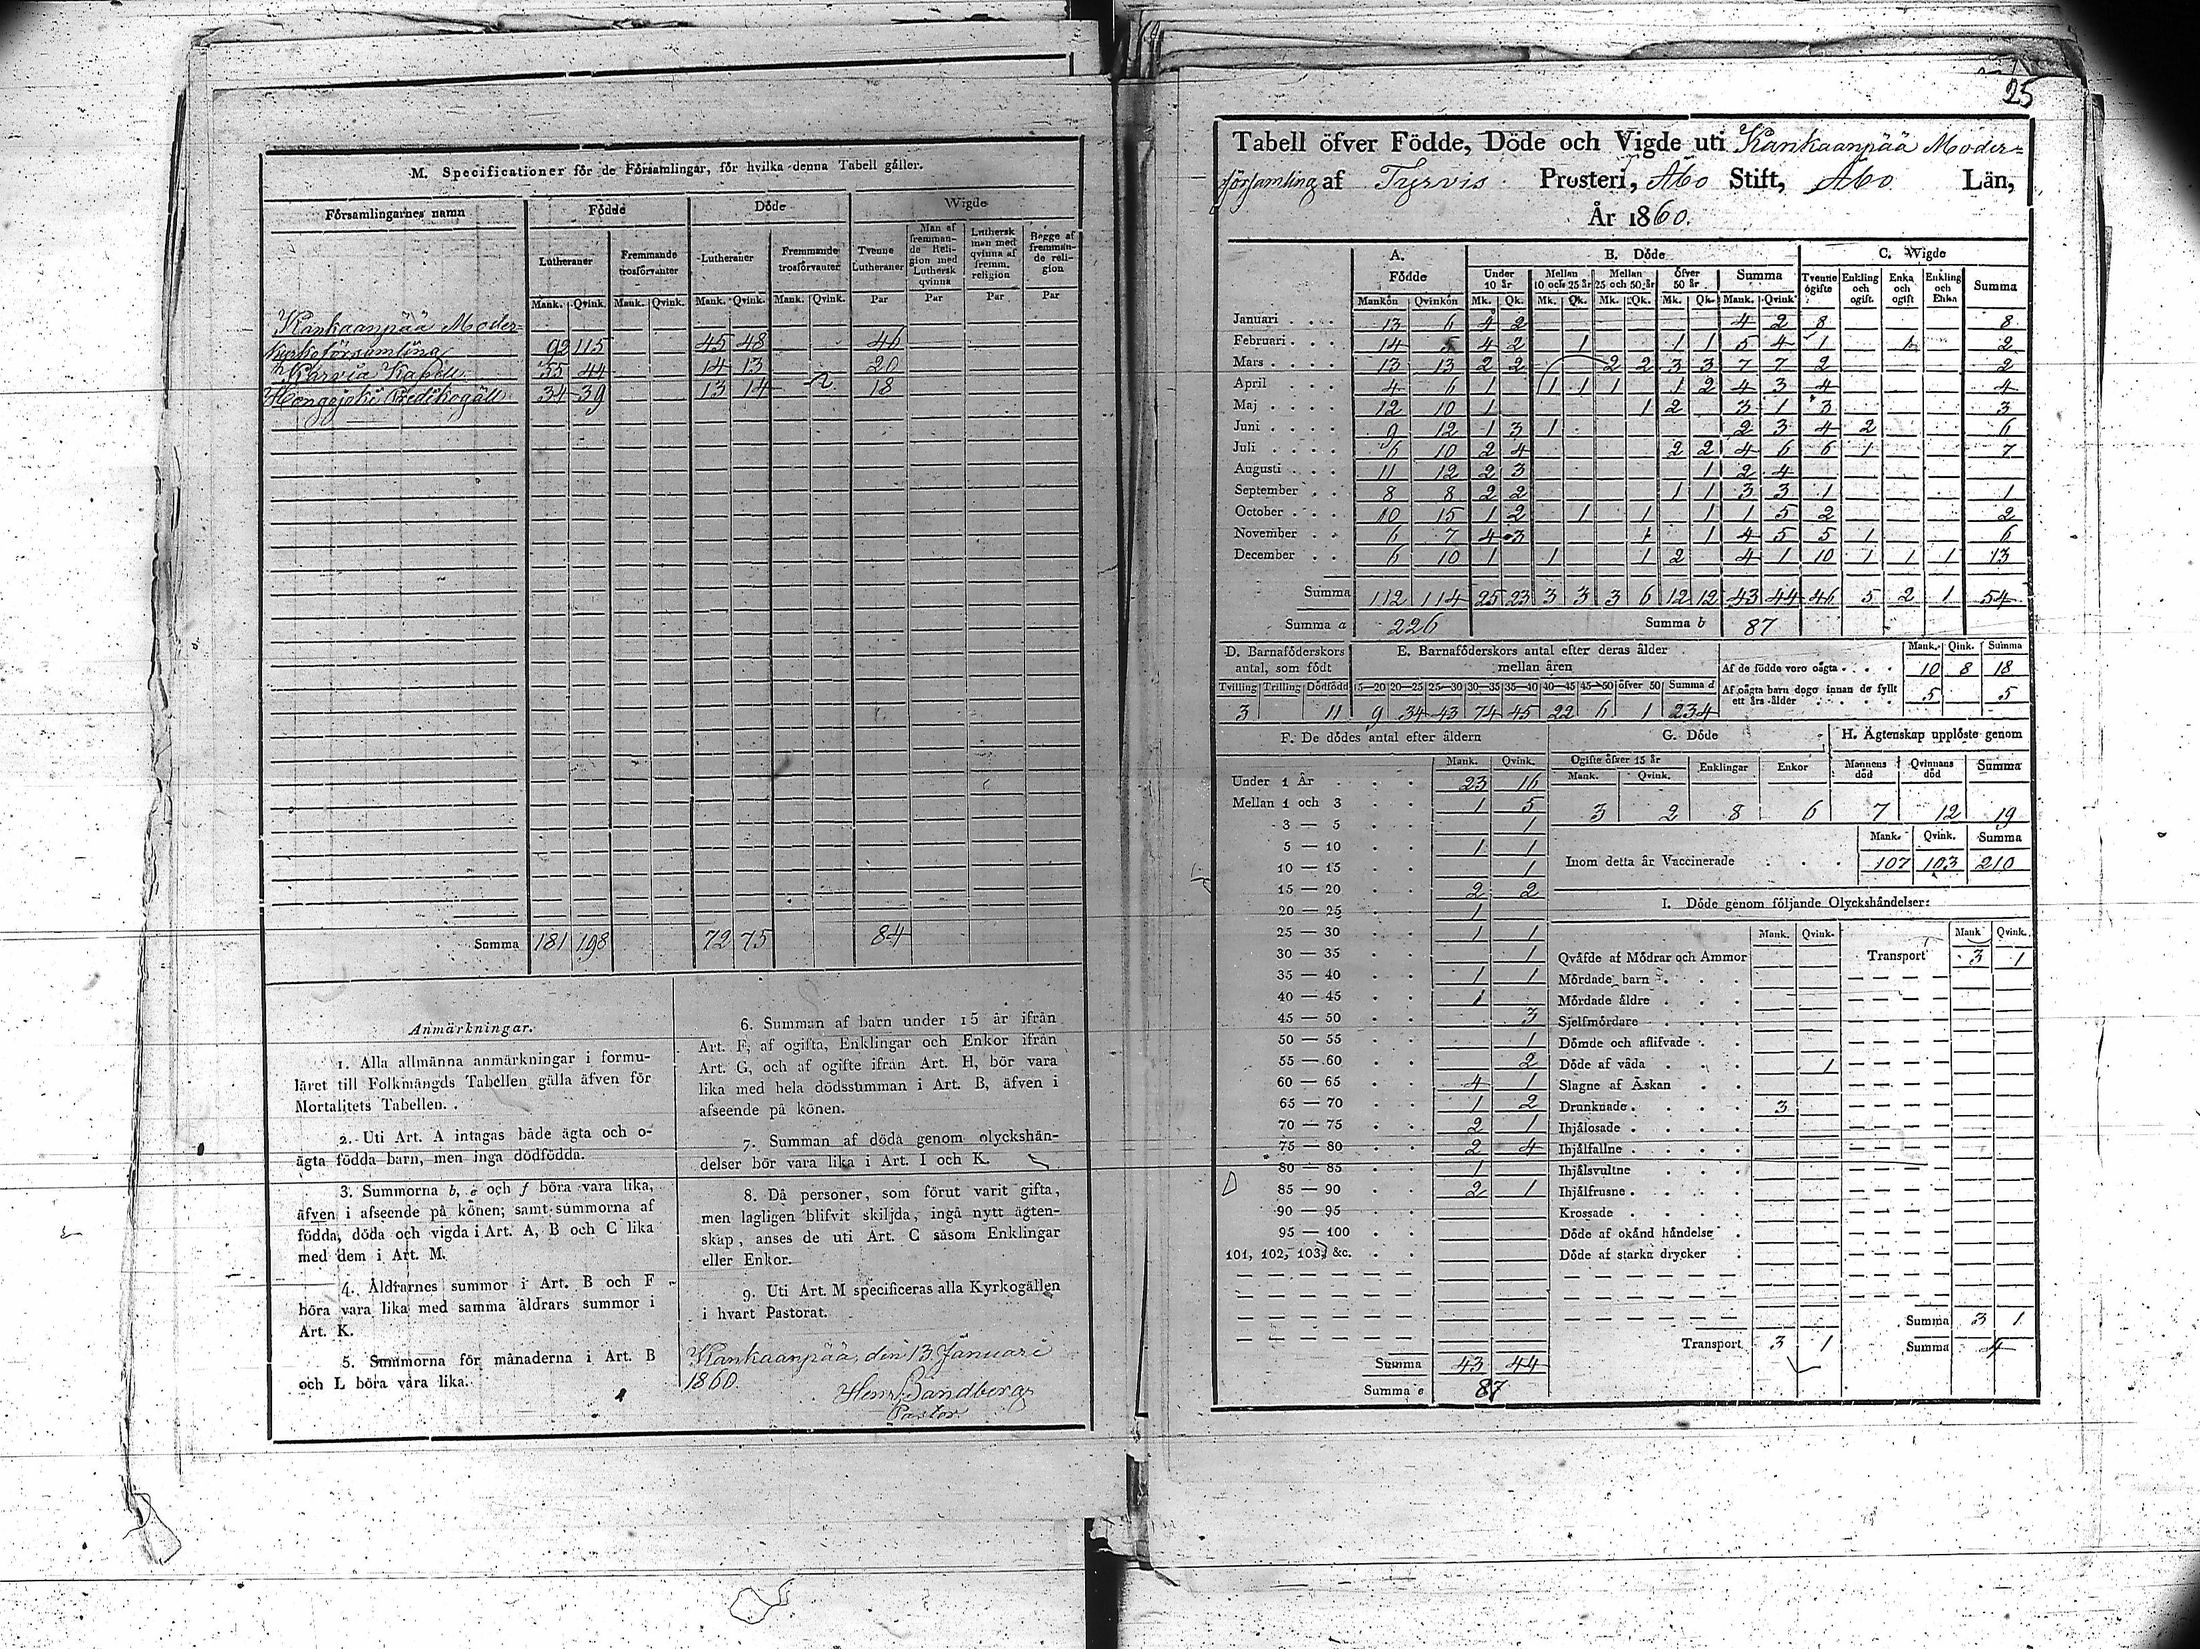 M. Specificationer för de Församlingar, för hvilka denna Tabell gäller.
Församlingarnes namn | Födde | Döde | Wigde
Lutheraner | Fremmande trosförvanter | Lutheraner | Fremmande trosförvanter | Tvenne Lutheraner | Man af fremmande Religion med Luthersk qvinna | Luthersk man med qvinna af fremm. religion | Begge af fremmande religion
Mank. Qvink. Mank. Qvink. Mank. Qvink. Mank. Qvink. Par Par Par Par
Kankaanpää Moder=
kyrkoförsamling 92 115 45 48 46
Karvia Kapell 55 44 14 13 20
Hongojoki Predikogäll 34 39 13 14 18
Summa 181 198 72 75 84
Anmärkningar.
1. Alla allmänna anmärkningar i formu-
läret till Folkmängds Tabellen gälla äfven för
Mortalitets Tabellen.
2. Uti Art. A intagas både ägta och o-
ägta födda barn, men inga dödfödda.
3. Summorna b, e och f böra vara lika,
äfven i afseende på könen; samt summorna af
födda, döda och vigda i Art. A, B och C lika
med dem i Art. M.
4. Åldrarnes summor i Art. B och F
böra vara lika med samma åldrars summor i
Art. K.
5. Summorna för månaderna i Art. B
och L böra vara lika.
6. Summan af barn under 15 år ifrån
Art. F, af ogifta, Enklingar och Enkor ifrån
Art. G, och af ogifte ifrån Art. H, bör vara
lika med hela dödssumman i Art. B, äfven i
afseende på könen.
7. Summan af döda genom olyckshän-
delser bör vara lika i Art. I och K.
8. Då personer, som förut varit gifta,
men lagligen blifvit skiljda, ingå nytt ägten-
skap, anses de uti Art. C såsom Enklingar
eller Enkor.
9. Uti Art. M specificeras alla Kyrkogällen
i hvart Pastorat.
Kankaanpää den 13 Januari
1860.
Henr. Sandberg
Pastor
25
Tabell öfver Födde, Döde och Vigde uti Kankaanpää Moder=
församling af Tyrvis Prosteri, Åbo Stift, Åbo Län,
År 1860.
A. Födde | B. Döde | C. Wigde
Under 10 år | Mellan 10 och 25 år | Mellan 25 och 50 år | Öfver 50 år | Summa | Tvenne ogifte | Enkling och ogift. | Enka och ogift | Enkling och Enka | Summa
Mankön Qvinkön Mk. Qk. Mk. Qk. Mk. Qk. Mk. Qk. Mank. Qvink.
Januari 13 6 4 2 4 2 8 8
Februari 14 5 4 2 1 1 1 5 4 1 1 2
Mars 13 13 2 2 2 2 3 3 7 7 2 2
April 4 6 1 1 1 1 1 2 4 3 4 4
Maj 12 10 1 1 2 3 1 3 3
Juni 9 12 1 3 1 2 3 4 2 6
Juli 6 10 2 4 2 2 4 6 6 1 7
Augusti 11 12 2 3 1 2 4
September 8 8 2 2 1 1 3 3 1 1
October 10 15 1 2 1 1 1 1 5 2 2
November 6 7 4 3 1 1 4 5 5 1 6
December 6 10 1 1 1 2 4 1 10 1 1 1 13
Summa 112 114 25 23 3 3 3 6 12 12 43 44 46 5 2 1 54
Summa a 226 Summa b 87
D. Barnaföderskors antal, som födt
Tvilling Trilling Dödfödd
3 11
E. Barnaföderskors antal efter deras ålder mellan åren
15—20 20—25 25—30 30—35 35—40 40—45 45—50 öfver 50 Summa d
9 34 43 74 45 22 6 1 234
Mank. Qink. Summa
Af de födde voro oägta 10 8 18
Af oägta barn dogo innan de fyllt ett års ålder 5 5
F. De dödes antal efter åldern
Mank. Qvink.
Under 1 År 23 16
Mellan 1 och 3 1 5
3 — 5 1
5 — 10 1 1
10 — 15 1
15 — 20 2 2
20 — 25 1
25 — 30 1 1
30 — 35 1
35 — 40 1 1
40 — 45 1
45 — 50 3
50 — 55 1
55 — 60 2
60 — 65 4 1
65 — 70 1 2
70 — 75 2 1
75 — 80 2 4
80 — 85 1
85 — 90 2 1
90 — 95
95 — 100
101, 102, 103, &c.
Summa 43 44
Summa e 87
G. Döde
Ogifte öfver 15 år | Enklingar | Enkor
Mank. Qvink.
3 2 8 6
H. Ägtenskap upplöste genom
Mannens död | Qvinnans död | Summa
7 12 19
Mank. Qvink. Summa
Inom detta år Vaccinerade 107 103 210
I. Döde genom följande Olyckshändelser:
Mank. Qvink. Mank Qvink.
Qväfde af Mödrar och Ammor
Mördade barn
Mördade äldre
Sjelfmördare
Dömde och aflifvade
Döde af våda 1
Slagne af Åskan
Drunknade 3
Ihjälosade
Ihjälfallne
Ihjälsvultne
Ihjälfrusne
Krossade
Döde af okänd händelse
Döde af starka drycker
Transport 3 1
Transport 3 1
Summa 3 1
Summa 4